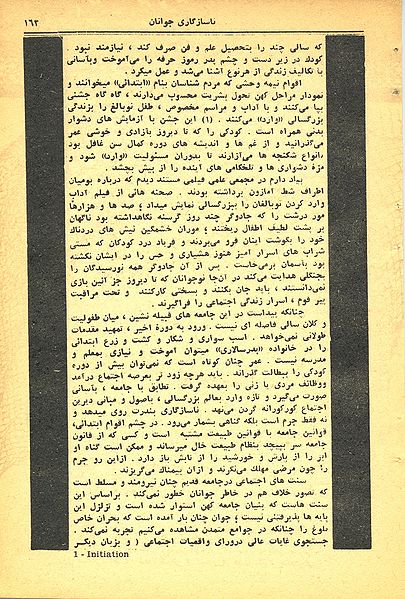 ناسازگاری جوانان ۱۶۳
که سالی چند را بتحصیل علم و فن صرف کند ، نیازمند نبود .
کودك در زیر دست و چشم پدر رموز حرفه را می‌آموخت وبآسانی
با تکالیف زندگی از هرنوع آشنا می‌شد و عمل میکرد .
اقوام نیمه وحشی که مردم شناسان بنام «ابتدائی» میخوانند و
نمودار مراحل کهن تحول بشریت محسوب می‌دارند ، گاه گاه جشنی
بپا می‌کنند و با آداب و مراسم مخصوص ، طفل نوبالغ را بزندگی
بزرگسالی «وارد» می‌کنند . (۱) این جشن با آزمایش های دشوار
بدنی همراه است . کودکی را که تا دیروز بآزادی و خوشی عمر
می‌گذرانید و از غم ها و اندیشه های دوره کمال سن غافل بود
بانواع شکنجه ها می‌آزارند تا بدوران مسئولیت «وارد» شود و
مزهٔ دشواری ها و تلخکامی های آینده را از پیش بچشد .
بیاد دارم در مجمعی علمی فیلمی مستند دیدم که درباره بومیان
اطراف شط آمازون برداشته بودند . صحنه هائی از فیلم آداب
وارد کردن نوبالغان را ببزرگسالی نمایش میداد ؛ صد ها و هزارها
مور درشت را که جادوگر چند روز گرسنه نگاهداشته بود ناگهان
بر پشت لطیف اطفال ریختند ؛ موران خشمگین نیش های دردناك
خود را بگوشت اینان فرو می‌بردند و فریاد درد کودکان که مستی
شراب های اسرار آمیز هنوز هشیاری و حس را در ایشان نکشته
بود بآسمان برمی‌خاست . پس از آن جادوگر همه نورسیدگان را
بجنگلی هدایت می‌کند در آن‌جا نوجوانان که تا دیروز جز آئین بازی
نمی‌دانستند ، باید جان بکنند و بسختی کارکنند و تحت مراقبت
پیر قوم ، اسرار زندگی اجتماعی را فراگیرند .
چنانکه پیداست در این جامعه های قبیله نشین ، میان طفولیت
و کلان سالی فاصله ای نیست . ورود به دورهٔ اخیر ، تمهید مقدمات
طولانی نمی‌خواهد . اسب سواری و شکار و کشت و زرع ابتدائی
را در خانواده «پدرسالاری» میتوان آموخت و نیازی بمعلم و
مدرسه نیست . عمر چنان کوتاه است که نمی‌توان بیش از دوره
کودکی را ببطالت گذراند . باید هرچه زود تر بعرصه اجتماع درآمد
ووظائف مردی یا زنی را بعهده گرفت . تطابق با جامعه ، بآسانی
صورت می‌گیرد و تازه وارد بعالم بزرگسالی ، باصول و مبانی دیرین
اجتماع کورکورانه گردن می‌نهد . ناسازگاری بندرت روی میدهد و
نه فقط جرم است بلکه گناهی بشمار می‌رود . در چشم اقوام ابتدائی،
قوانین جامعه با قوانین طبیعت مشتبه است و کسی که از قانون
جامعه سر بپیچد بنظام طبیعت خلل میرساند و ممکن است گناه او
ابر را از بارش و خورشید را از تابش باز دارد . ازاین رو چرم
را چون مرضی مهلك می‌نگرند و ازآن بیمناك می‌گریزند .
سنت های اجتماعی درجامعه قدیم چنان نیرومند و مسلط است
که تصور خلاف هم در خاطر جوانان خطور نمی‌کند . براساس این
سنت هاست که بنیان جامعه کهن استوار شده است و تزلزل این
پایه ها پذیرفتنی نیست ؛ جوان چنان بار آمده است که بحران خاص
بلوغ را چنانکه در جوامع متمدن مشاهده می‌کنیم تجربه نمی‌کند .
جستجوی غایات عالی درورای واقعیات اجتماعی ( و بزبان دیگر
1 - Initiation